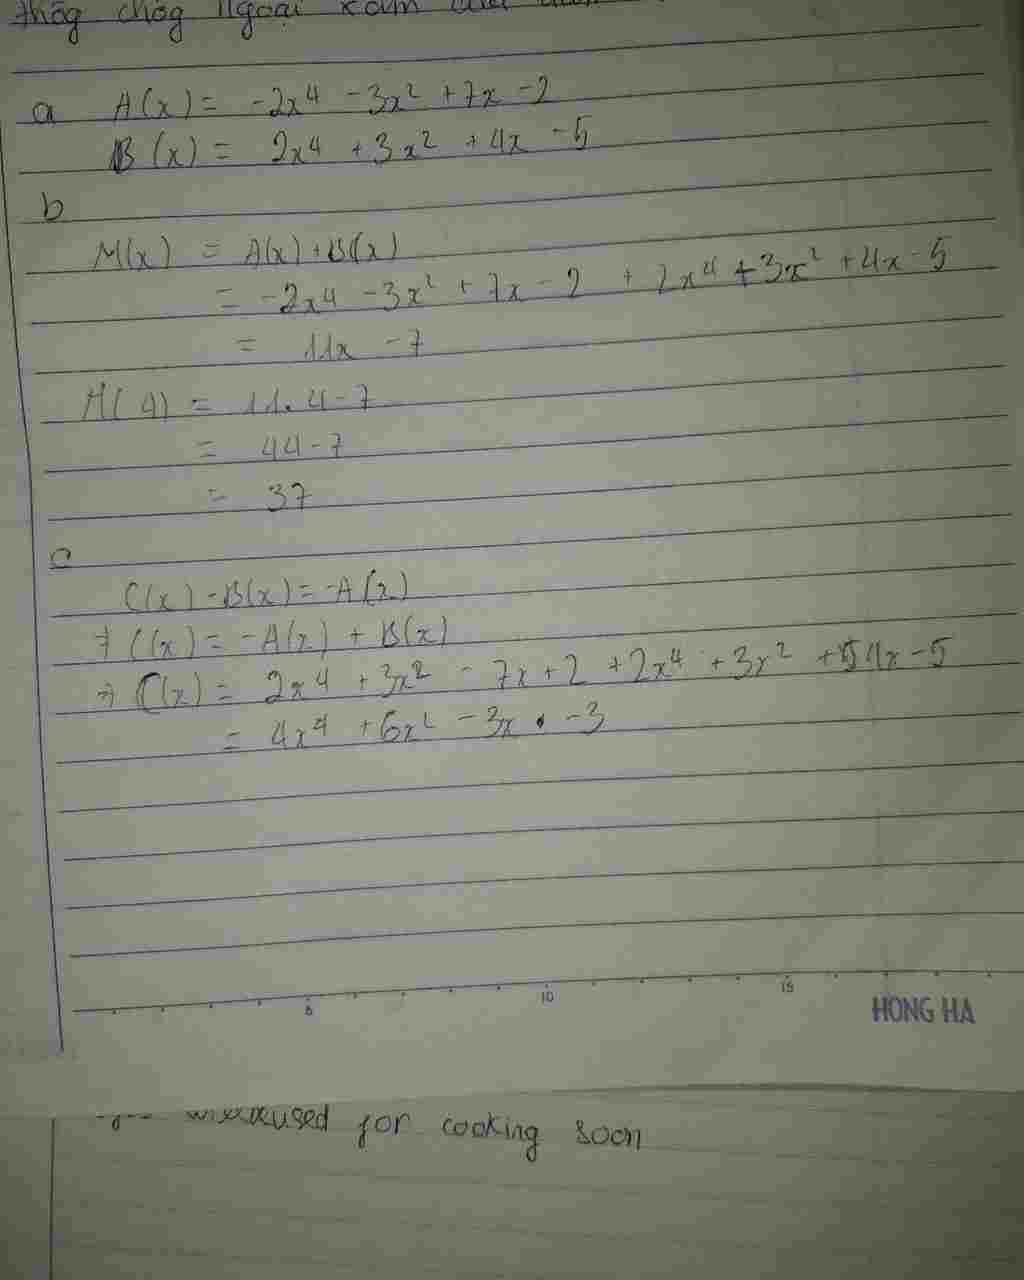 thốg chốg ngoại xâm
a A(x) = -2x⁴ - 3x² + 7x - 2
B(x) = 2x⁴ + 3x² + 4x - 5
b
M(x) = A(x) + B(x)
= -2x⁴ - 3x² + 7x - 2 + 2x⁴ + 3x² + 4x - 5
= 11x - 7
M(4) = 11.4 - 7
= 44 - 7
= 37
c
C(x) - B(x) = -A(x)
⇒ C(x) = -A(x) + B(x)
⇒ C(x) = 2x⁴ + 3x² - 7x + 2 + 2x⁴ + 3x² + 4x - 5
= 4x⁴ + 6x² - 3x - 3
10 15
HONG HA
used for cooking soon